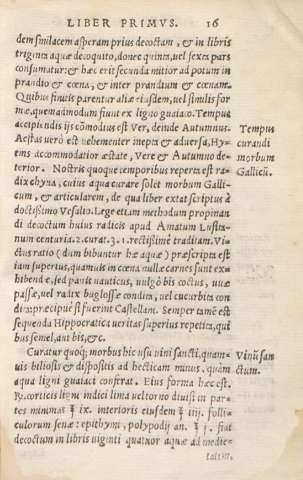 LIBER PRIMVS. 16
dem smilacem asperam prius decoctam, & in libris
triginta aquæ decoquito, donec quinta, uel sexta pars
consumatur: & hæc erit secunda mittior ad potum in
prandio & cœna, & inter prandium & cœnam.
Quibus finitis parentur alia eiusdem, uel similis for
mæ, quemadmodum fiunt ex ligno guaiaco. Tempus
accipiendi ijs cōmodius est Ver, deinde Autumnus.
Aestas uerò est uehementer inepta & aduersa, Hy=
ems accommodatior æstate, Vere & Autumno de=
terior. Nostris quoque temporibus reperta est ra=
dix chyna, cuius aqua curare solet morbum Galli=
cum, & articularem, de qua liber extat scriptus à
doctissimo Vesalio. Lege etiam methodum propinan
di decoctum huius radicis apud Amatum Lusita=
num centuria. 2. curat. 31. rectissimè traditam. Vi=
ctus ratio (dum bibuntur hæ aquæ) præscripta est
iam supertus, quamuis in cœna nullæ carnes sunt ex=
hibendæ, sed panis nauticus, uulgò bis coctus, uuæ
passæ, uel radix buglossæ condita, uel cucurbita con
dita: præcipuè si fuerint Castellam. Semper tamē est
sequenda Hippocratica ueritas superius repetita, qui
bus semel, aut bis, &c.
Curatur quoq; morbus hic usu uini sancti, quam=
uis biliosis & dispositis ad hecticam minus, quàm
aqua ligni guaiaci conferat. Eius forma hæc est.
℞. corticis ligni indici lima uel torno diuisi in par=
tes minimas ℥ ix. interioris eiusdem ℥ iiij. folli=
culorum senæ: epithymi, polypodij an. ℥ j. fiat
decoctum in libris uiginti quatuor aquæ ad medie=
tatem.
Tempus
curandi
morbum
Gallicū.
Vinū san
ctum.